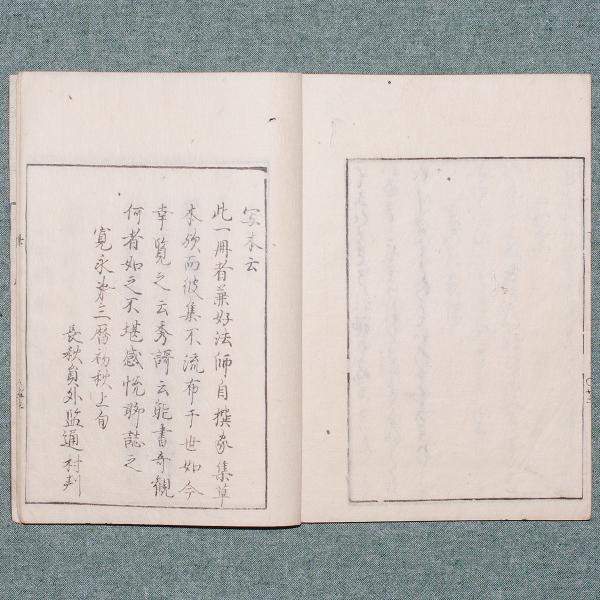 写本云
此一冊者兼好法師自撰家集草
本欤而彼集不流布于世如今
幸覧之云秀謌云能書奇観
何者如之不堪感悦聊誌之
寛永第三暦初秋上旬
長秋員外監通村判